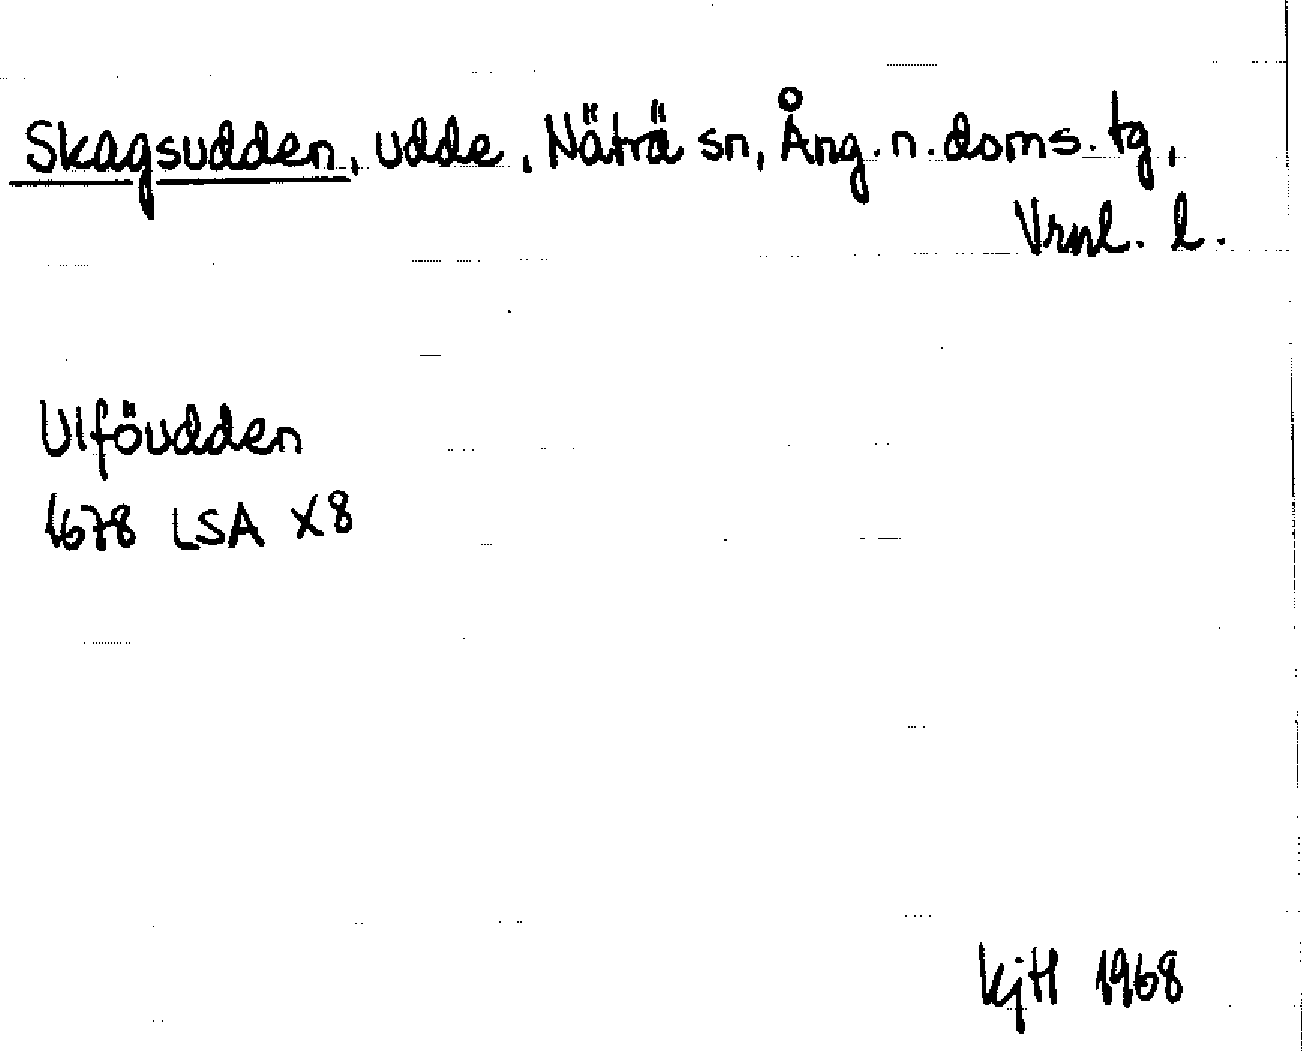 Skagsudden, udde, Näträ sn, Ång. n. doms. tg,
Vrnl. l.
Ulföudden
1678 LSA X8
KjH 1968